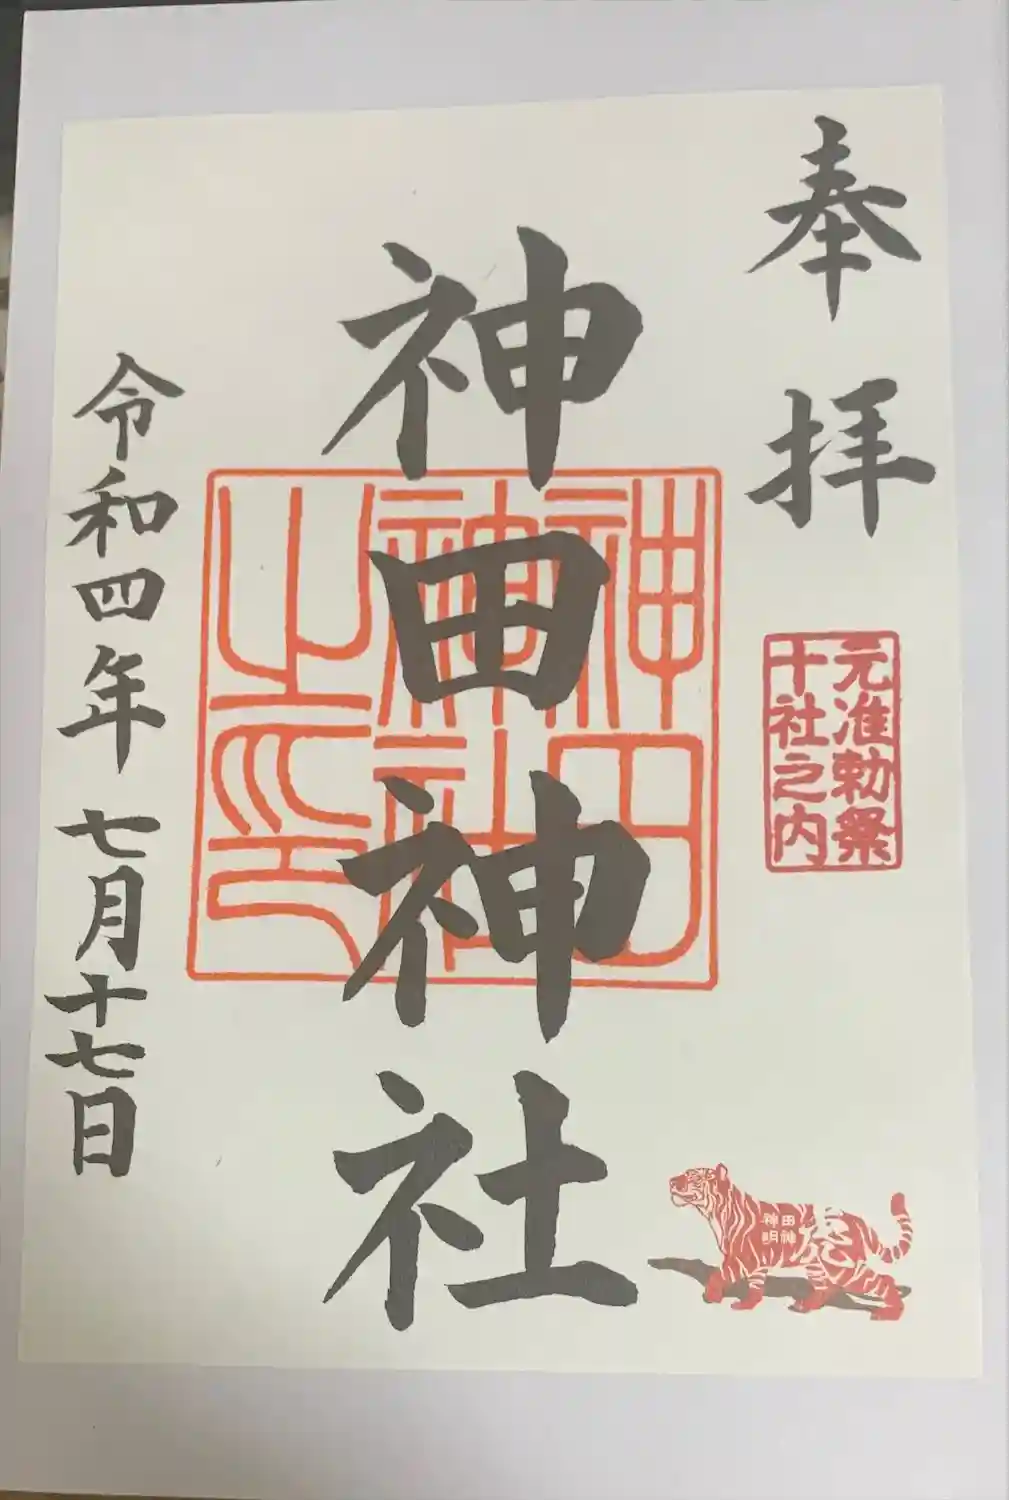 奉拝
元准勅祭
十社之内
神田神社
神田
神社
之印
令和四年七月十七日
神田
明神
虎